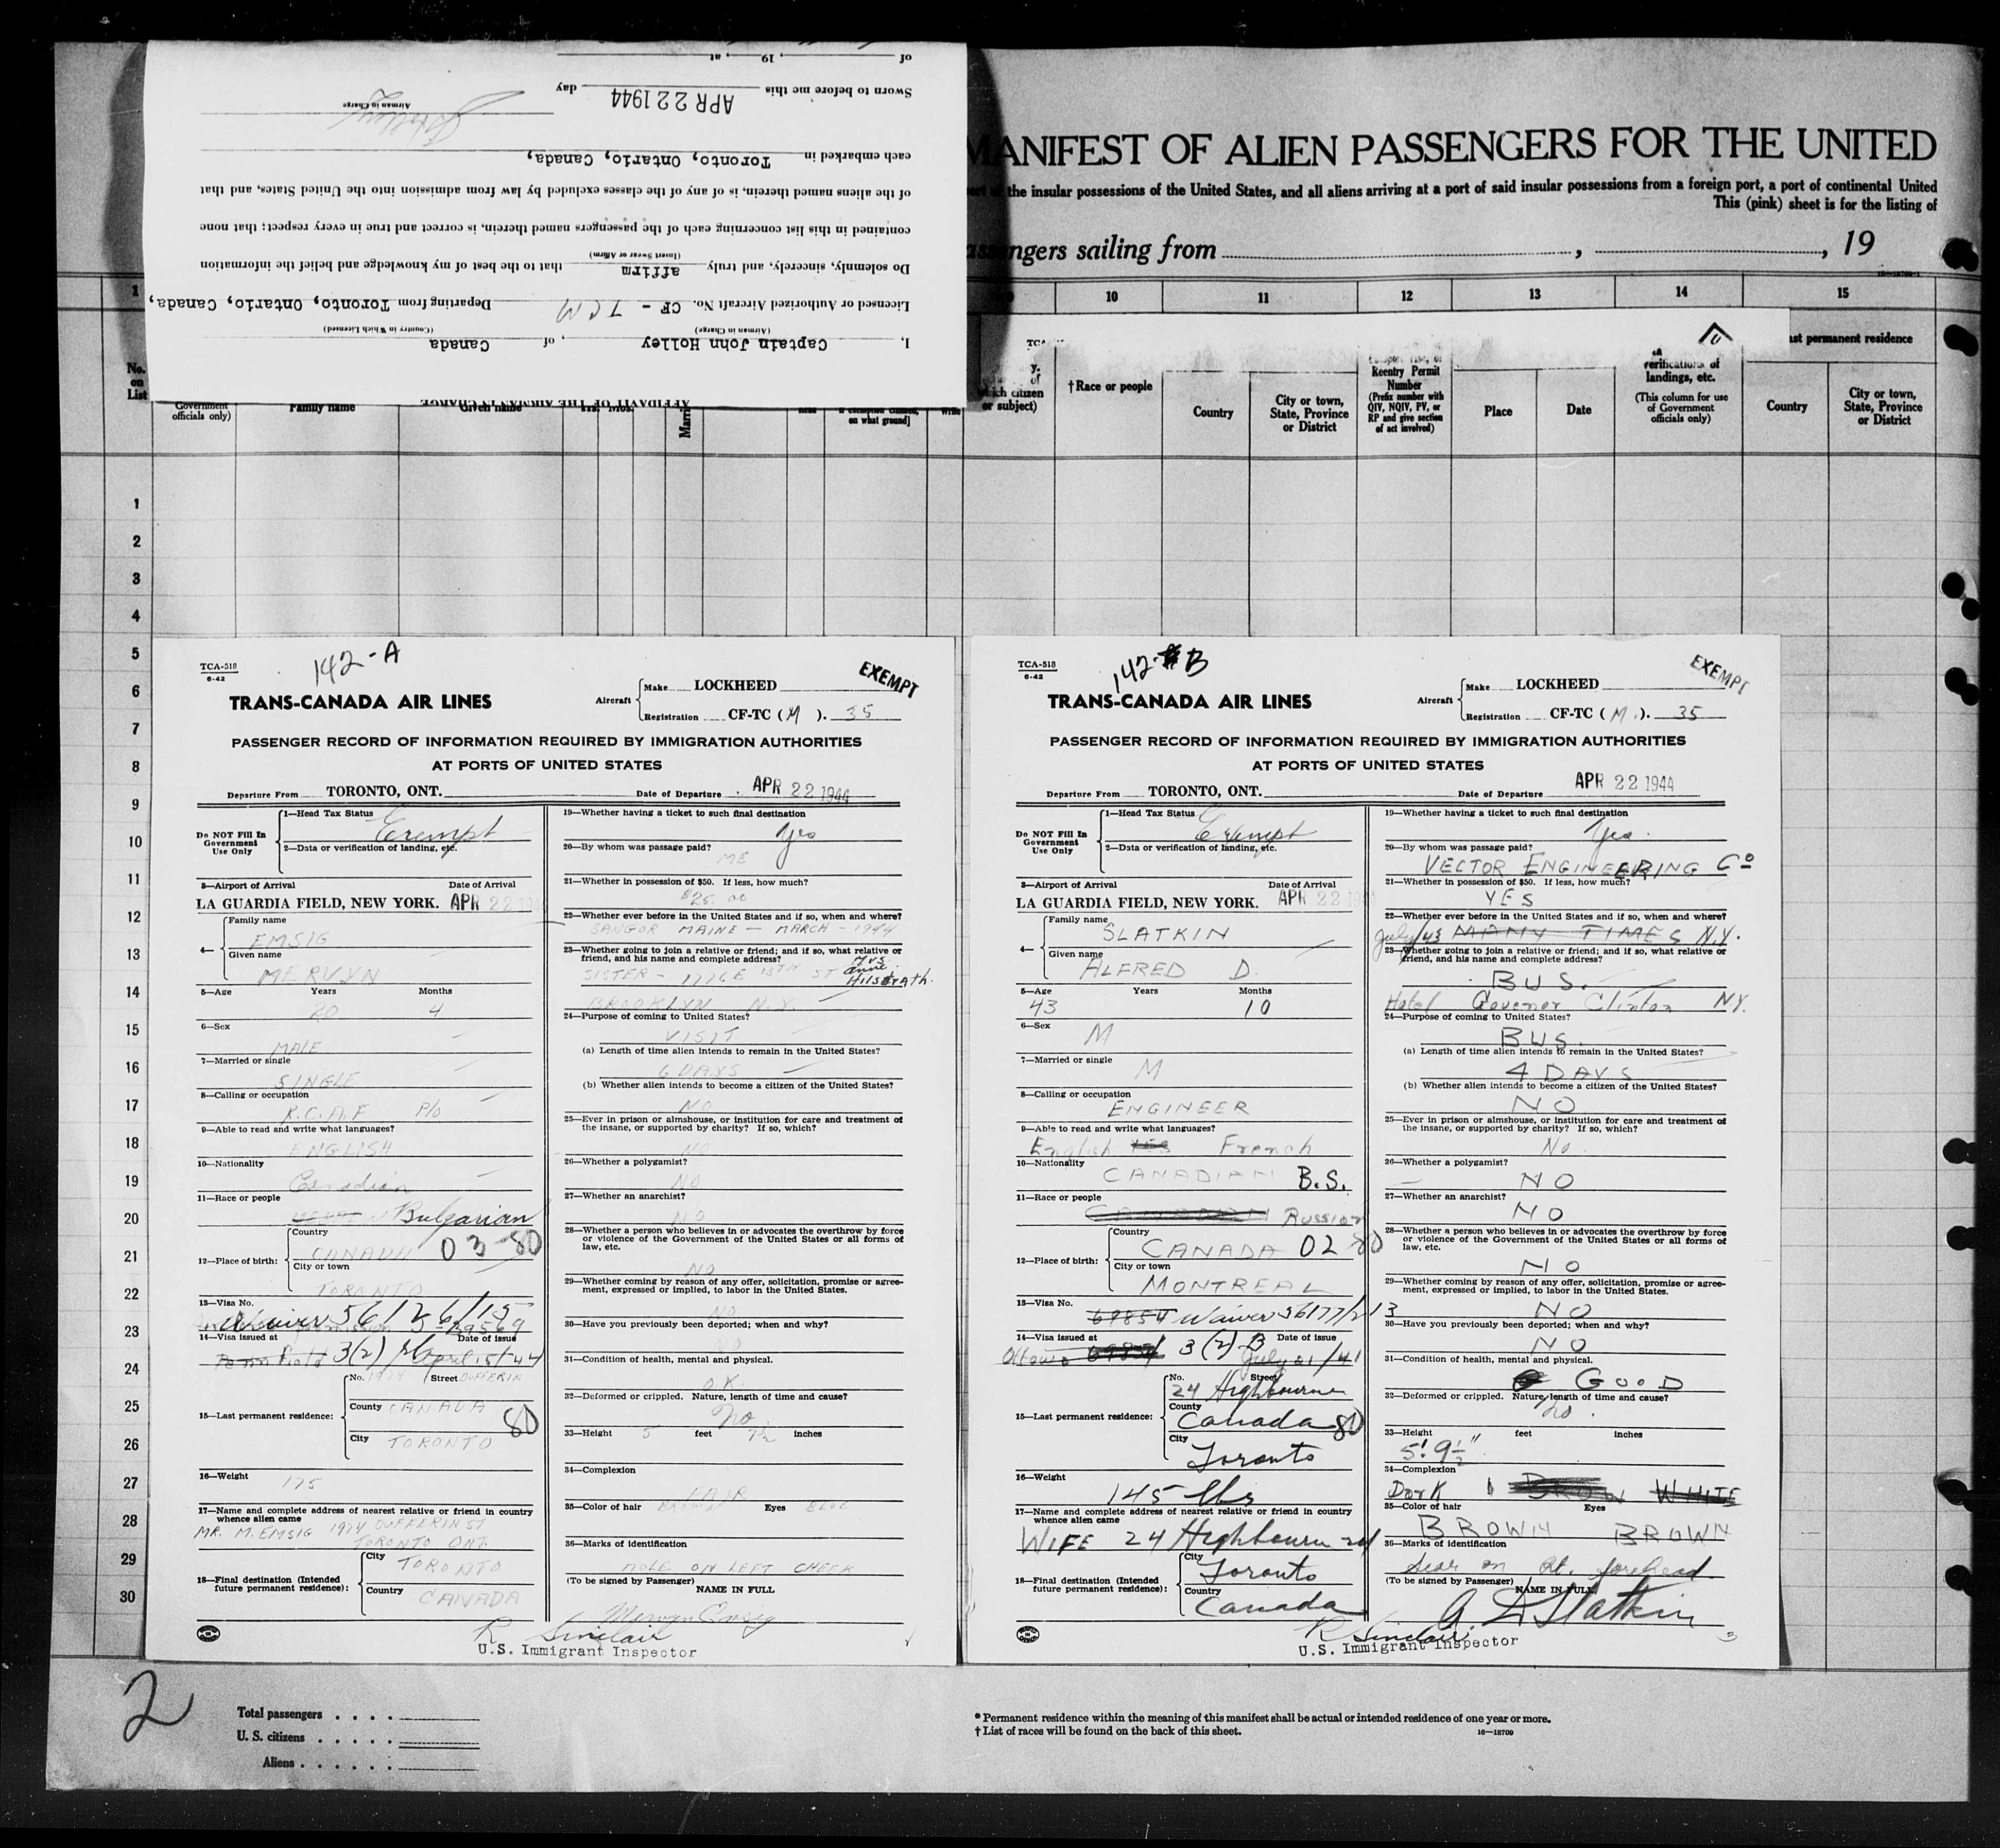 AFFIDAVIT OF THE AIRMAN IN CHARGE
I, Captain John Holley, of Canada
(Airman in Charge) (Country in Which Licensed)
Licensed or Authorized Aircraft No. CF - TCM Departing from Toronto, Ontario, Canada,
Do solemnly, sincerely, and truly affirm that to the best of my knowledge and belief the information
(Insert Swear or Affirm)
contained in this list concerning each of the passengers named therein, is correct and true in every respect; that none
of the aliens named therein, is of any of the classes excluded by law from admission into the United States, and that
each embarked in Toronto, Ontario, Canada,
Airman in Charge
Sworn to before me this APR 22 1944 day
of , 19 , at
MANIFEST OF ALIEN PASSENGERS FOR THE UNITED
the insular possessions of the United States, and all aliens arriving at a port of said insular possessions from a foreign port, a port of continental United
This (pink) sheet is for the listing of
passengers sailing from , , 19
1 10 11 12 13 14 15
No. on List
Government officials only)
Family name
Given name
on what ground]
which citizen or subject)
†Race or people
Country
City or town, State, Province or District
Reentry Permit Number
(Prefix number with QIV, NQIV, PV, or RP and give section of act involved)
Place
Date
verifications of landings, etc.
(This column for use of Government officials only)
permanent residence
Country
City or town, State, Province or District
1
2
3
4
5
6
7
8
9
10
11
12
13
14
15
16
17
18
19
20
21
22
23
24
25
26
27
28
29
30
TCA-518
6-42
142-A
EXEMPT
TRANS-CANADA AIR LINES
Aircraft Make LOCKHEED
Registration CF-TC (M). 35
PASSENGER RECORD OF INFORMATION REQUIRED BY IMMIGRATION AUTHORITIES
AT PORTS OF UNITED STATES
Departure From TORONTO, ONT. Date of Departure APR 22 1944
Do NOT Fill In Government Use Only
1—Head Tax Status Exempt
2—Data or verification of landing, etc.
3—Airport of Arrival Date of Arrival
LA GUARDIA FIELD, NEW YORK. APR 22 1944
4— Family name
EMSIG
Given name
MERVYN
5—Age Years Months
20 4
6—Sex
MALE
7—Married or single
SINGLE
8—Calling or occupation
R.C.A.F P/O
9—Able to read and write what languages?
ENGLISH
10—Nationality
Canadian
11—Race or people
Bulgarian
12—Place of birth: Country
CANADA 03 80
City or town
TORONTO
13—Visa No.
Waiver 56126/15
14—Visa issued at Date of issue
3(2) April 15/44
15—Last permanent residence: No. 1974 Street DUFFERIN
County CANADA 80
City TORONTO
16—Weight
175
17—Name and complete address of nearest relative or friend in country whence alien came
MR. M. EMSIG 1974 DUFFERIN ST
TORONTO ONT.
18—Final destination (Intended future permanent residence): City
TORONTO
Country
CANADA
19—Whether having a ticket to such final destination
Yes
20—By whom was passage paid?
ME
21—Whether in possession of $50. If less, how much?
$25.00
22—Whether ever before in the United States and if so, when and where?
BANGOR MAINE — MARCH - 1944
23—Whether going to join a relative or friend; and if so, what relative or friend, and his name and complete address?
SISTER - 1776 E 15TH ST Mrs. Anne Hilstrath.
BROOKLYN N.Y.
24—Purpose of coming to United States?
VISIT
(a) Length of time alien intends to remain in the United States?
6 DAYS
(b) Whether alien intends to become a citizen of the United States?
NO
25—Ever in prison or almshouse, or institution for care and treatment of the insane, or supported by charity? If so, which?
NO
26—Whether a polygamist?
NO
27—Whether an anarchist?
NO
28—Whether a person who believes in or advocates the overthrow by force or violence of the Government of the United States or all forms of law, etc.
NO
29—Whether coming by reason of any offer, solicitation, promise or agreement, expressed or implied, to labor in the United States.
NO
30—Have you previously been deported; when and why?
NO
31—Condition of health, mental and physical.
O.K.
32—Deformed or crippled. Nature, length of time and cause?
no
33—Height 5 feet 7½ inches
34—Complexion
FAIR
35—Color of hair BROWN Eyes BLUE
36—Marks of identification
MOLE ON LEFT CHEEK
(To be signed by Passenger) NAME IN FULL
Mervyn Emsig
R Sinclair
U.S. Immigrant Inspector
TCA-518
6-42
142-B
EXEMPT
TRANS-CANADA AIR LINES
Aircraft Make LOCKHEED
Registration CF-TC (M.). 35
PASSENGER RECORD OF INFORMATION REQUIRED BY IMMIGRATION AUTHORITIES
AT PORTS OF UNITED STATES
Departure From TORONTO, ONT. Date of Departure APR 22 1944
Do NOT Fill In Government Use Only
1—Head Tax Status Exempt
2—Data or verification of landing, etc.
3—Airport of Arrival Date of Arrival
LA GUARDIA FIELD, NEW YORK. APR 22 1944
4— Family name
SLATKIN
Given name
ALFRED D.
5—Age Years Months
43 10
6—Sex
M
7—Married or single
M
8—Calling or occupation
ENGINEER
9—Able to read and write what languages?
English YES French
10—Nationality
CANADIAN B.S.
11—Race or people
CANADIAN Russian
12—Place of birth: Country
CANADA 02 80
City or town
MONTREAL
13—Visa No.
69854 Waiver 56177/213
14—Visa issued at Date of issue
Ottawa 69854 3(2) B July 21/41
15—Last permanent residence: No. Street
24 Highbourne
County
Canada 80
City
Toronto
16—Weight
145 lbs
17—Name and complete address of nearest relative or friend in country whence alien came
WIFE 24 Highbourne rd
18—Final destination (Intended future permanent residence): City
Toronto
Country
Canada
19—Whether having a ticket to such final destination
Yes.
20—By whom was passage paid?
VECTOR ENGINEERING Co
21—Whether in possession of $50. If less, how much?
YES
22—Whether ever before in the United States and if so, when and where?
July/43 MANY TIMES N.Y.
23—Whether going to join a relative or friend; and if so, what relative or friend, and his name and complete address?
BUS.
Hotel Govenor Clinton N.Y.
24—Purpose of coming to United States?
BUS.
(a) Length of time alien intends to remain in the United States?
4 DAYS
(b) Whether alien intends to become a citizen of the United States?
NO
25—Ever in prison or almshouse, or institution for care and treatment of the insane, or supported by charity? If so, which?
No.
26—Whether a polygamist?
NO
27—Whether an anarchist?
NO
28—Whether a person who believes in or advocates the overthrow by force or violence of the Government of the United States or all forms of law, etc.
NO
29—Whether coming by reason of any offer, solicitation, promise or agreement, expressed or implied, to labor in the United States.
NO
30—Have you previously been deported; when and why?
NO
31—Condition of health, mental and physical.
GOOD
32—Deformed or crippled. Nature, length of time and cause?
no.
33—Height feet inches
5' 9½"
34—Complexion
Dark BROWN WHITE
35—Color of hair Eyes
BROWN BROWN
36—Marks of identification
Scar on Rt. forehead
(To be signed by Passenger) NAME IN FULL
A. D. Slatkin
R Sinclair
U.S. Immigrant Inspector
2
Total passengers . . . .
U. S. citizens . . . . .
Aliens . . . . . .
* Permanent residence within the meaning of this manifest shall be actual or intended residence of one year or more.
† List of races will be found on the back of this sheet.
16—18709